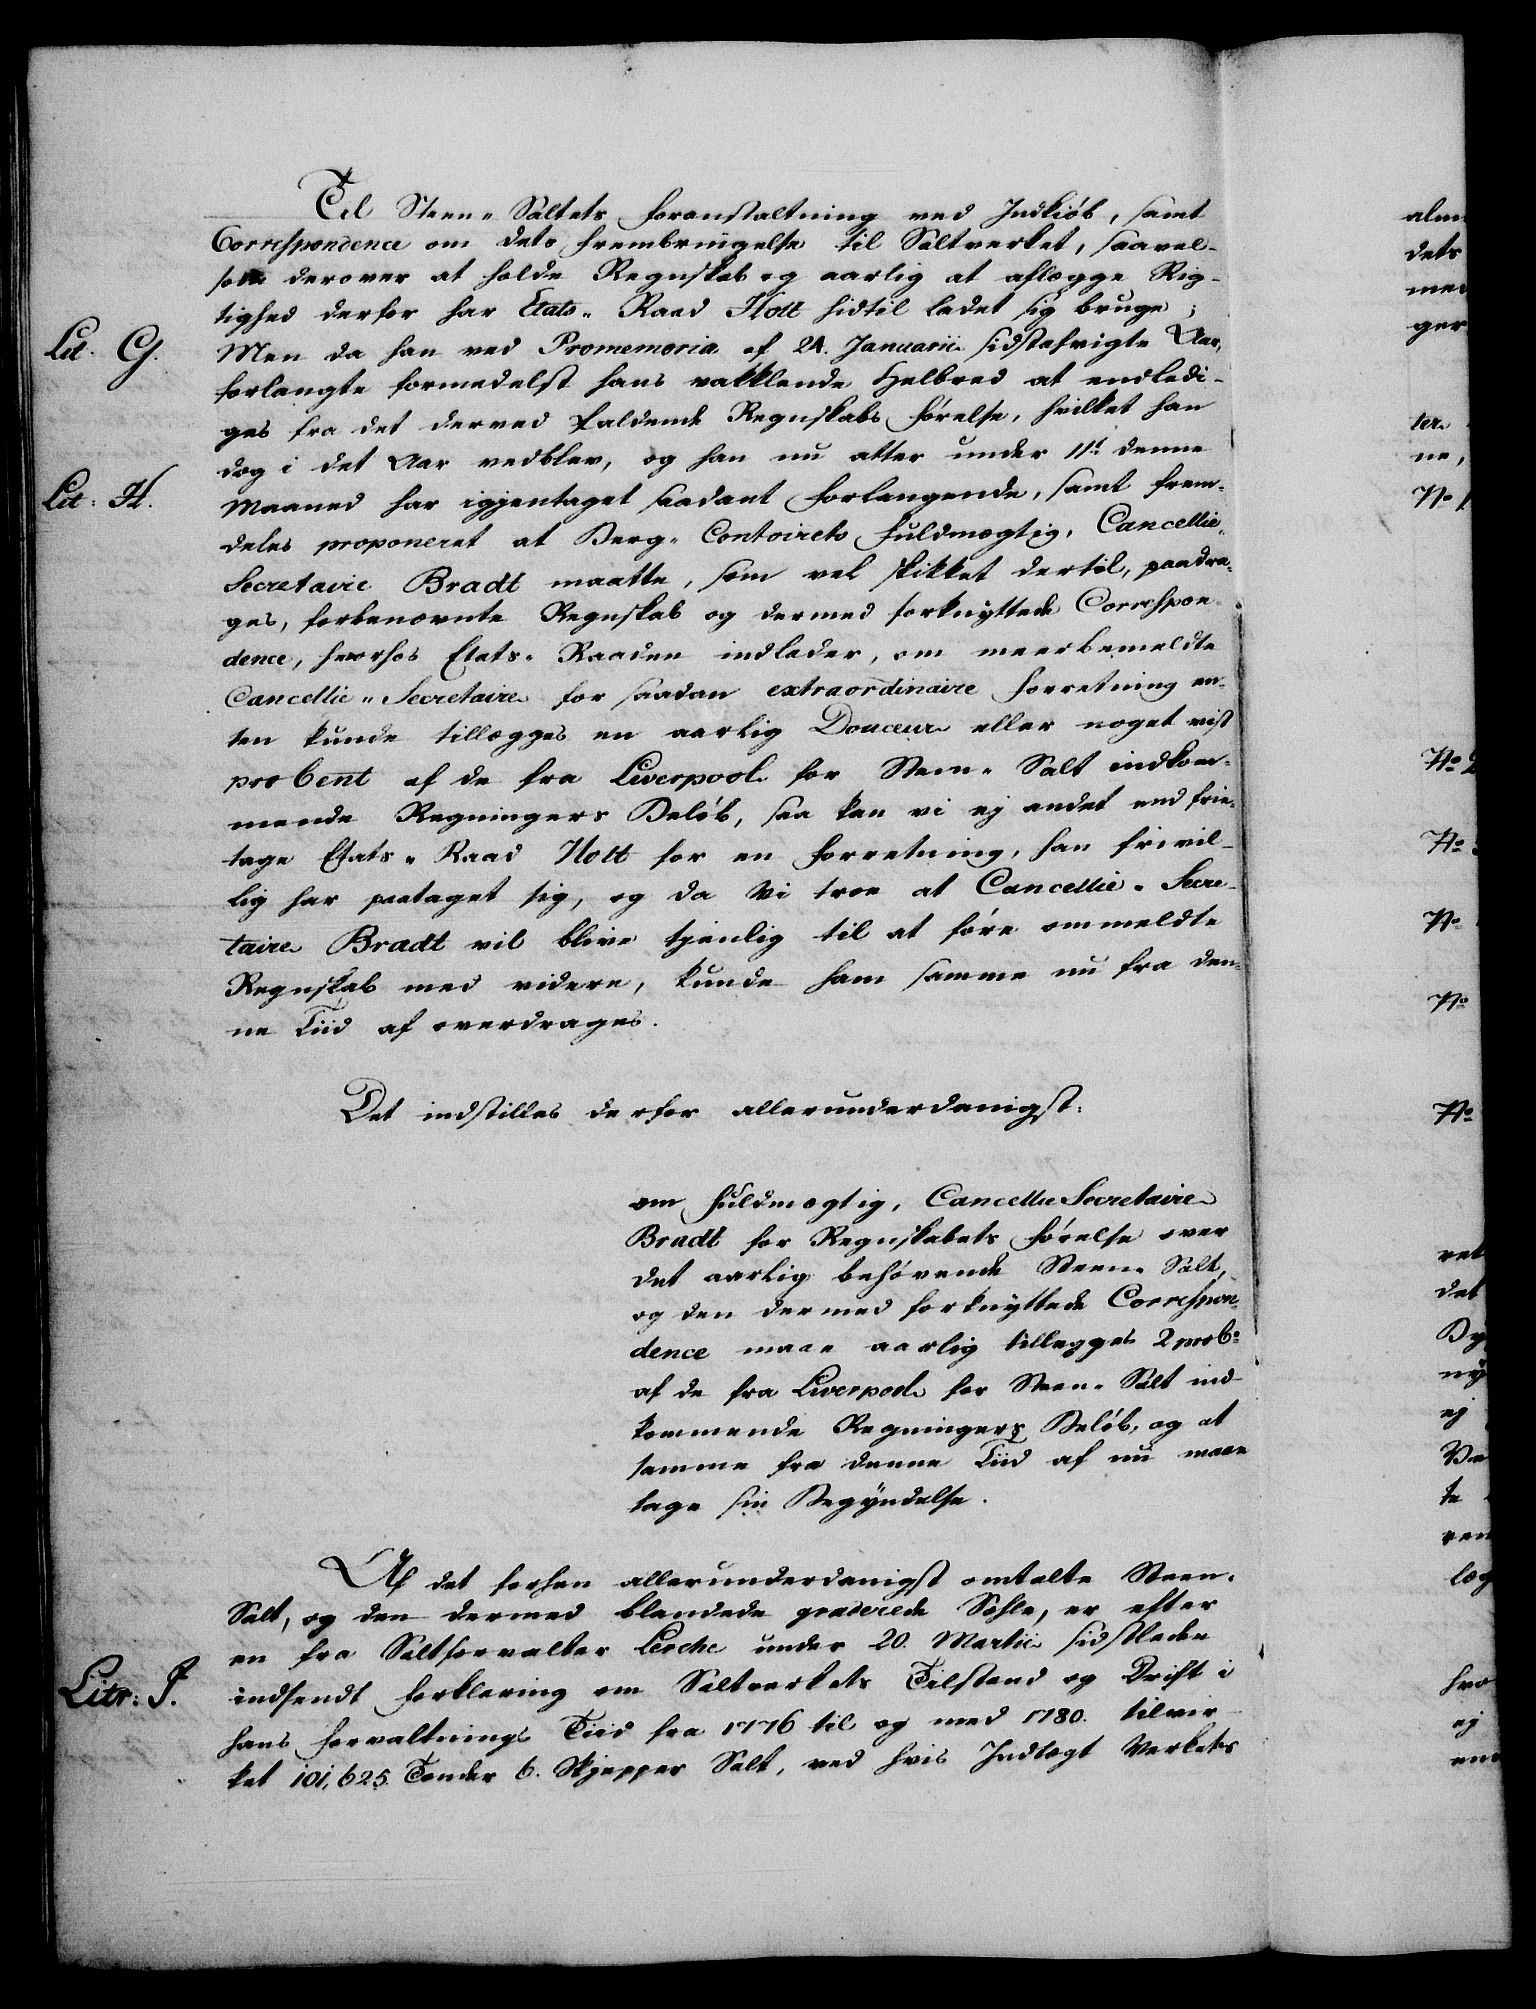 Til Steen-Saltets Foranstaltning ved Indkiøb, samt
Correspondence om dets Frembringelse til Saltverket, saavel-
som derover at holde Regnskab og aarlig at aflægge Rig-
tighed derfor har Etats-Raad Holt hidtil ladet sig bruge;
Lit. G.
Men da han ved Promemoria af 24. Januarii sidstafvigte Aar,
forlangte formedelst hans vakklende Helbred at endledi-
ges fra det derved faldende Regnskabs Førelse, hvilket han
dog i det Aar vedblev, og han nu atter under 11t denne
Lit: H.
Maaned har igjentaget saadant Forlangende, samt frem-
deles proponeret at Berg-Contoirets Fuldmægtig, Cancellie-
Secretaire Bradt maatte, som vel skikket dertil, paadra-
ges, forbenævnte Regnskab og dermed forknyttede Correspon-
dence, hvorhos Etats-Raaden indlader, om meerbemeldte
Cancellie-Secretaire for saadan extraordinaire Forretning en-
ten kunde tillægges en aarlig Douceur eller noget vist
proCent af de fra Liverpool for Steen-Salt indkom-
mende Regningers Beløb, saa kan vi ej andet end frie-
tage Etats-Raad Holt for en Forretning, han frivil-
lig har paataget sig, og da Vi troe at Cancellie-Secre-
taire Bradt vil blive tjenlig til at føre ommeldte
Regnskab med videre, kunde ham samme nu fra den-
ne Tiid af overdrages.
Det indstilles derfor allerunderdanigst:
om Fuldmægtig, Cancellie Secretaire
Bradt for Regnskabets Førelse over
det aarlig behøvende Steen-Salt,
og den dermed forknyttede Correspon-
dence maae aarlig tillegges 2 proC:
af de fra Liverpool for Steen-Salt ind-
kommende Regningers Beløb, og at
samme fra denne Tiid af nu maae
tage sin Begyndelse.
Af det forhen allerunderdanigst omtalte Steen-
Salt, og den dermed blandede graderede Sohle, er efter
en fra Saltforvalter Lerche under 20. Martii sidstleden
Litr: J.
indsendt Forklaring om Saltverkets Tilstand og Drift i
hans Forvaltnings Tiid fra 1776 til og med 1780. tilvir-
ket 101,625 Tønder 6. Skjepper Salt, ved hvis Indtægt Verkets